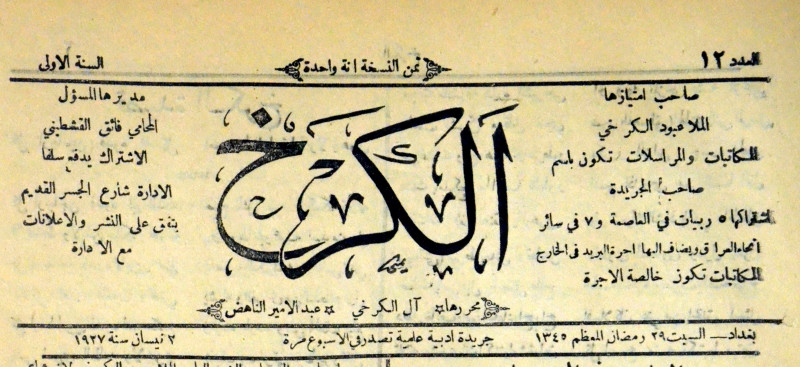 العدد ١٢
ثمن النسخة انة واحدة
السنة الاولى
صاحب امتيازها
الملا عبود الكرخي
المكاتبات والمراسلات تكون باسم
صاحب الجريدة
اشتراكها ٥ ربيات في العاصمة و ٧ في سائر
انحاء العراق ويضاف اليها اجرة البريد في الخارج
المكاتبات تكون خالصة الاجرة
الكرخ
محررها آل الكرخي عبد الامير الناهض
مديرها المسؤل
المحامي فائق القشطيني
الاشتراك يدفع سلفا
الادارة شارع الجسر القديم
يتفق على النشر والاعلانات
مع الادارة
بغداد السبت ٢٩ رمضان المعظم ١٣٤٥
جريدة ادبية عامية تصدر في الاسبوع مرة
٢ نيسان سنة ١٩٢٧